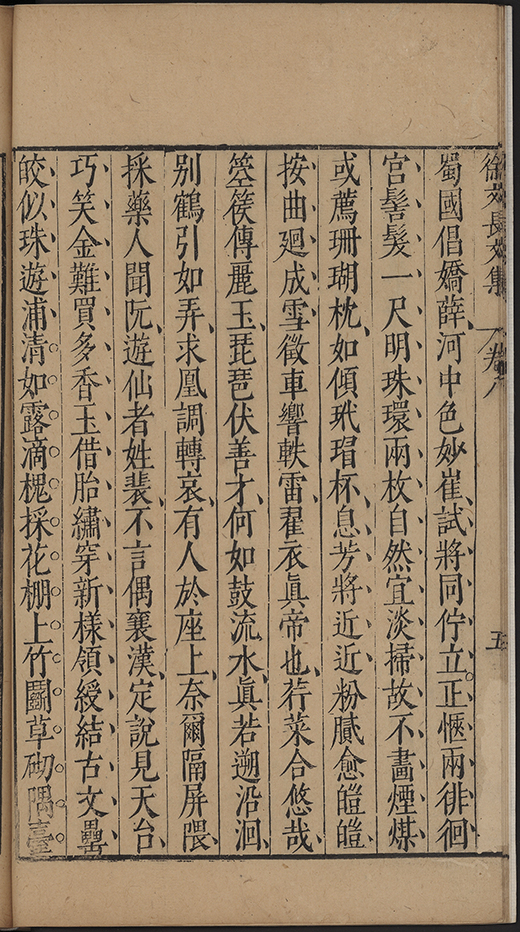 徐文長文集 卷八 五
蜀國倡嬌薛河中色妙崔試將同佇立正愜兩徘徊
宮髻髮一尺明珠環兩枚自然宜淡掃故不畫煙煤
或薦珊瑚枕如傾玳瑁杯息芳將近近粉膩愈皚皚
按曲廻成雪徵車響軼雷翟衣眞帝也荇菜合悠哉
箜篌傳麗玉琵琶伏善才何如鼓流水眞若遡沿洄
别鶴引如弄求凰調轉哀有人於座上奈爾隔屏隈
採藥人聞阮遊仙者姓裴不言偶襄漢定說見天台
巧笑金難買多香玉借胎繡穿新樣領綬結古文罍
皎似珠遊浦清如露滴槐採花棚上竹鬬草砌隅臺